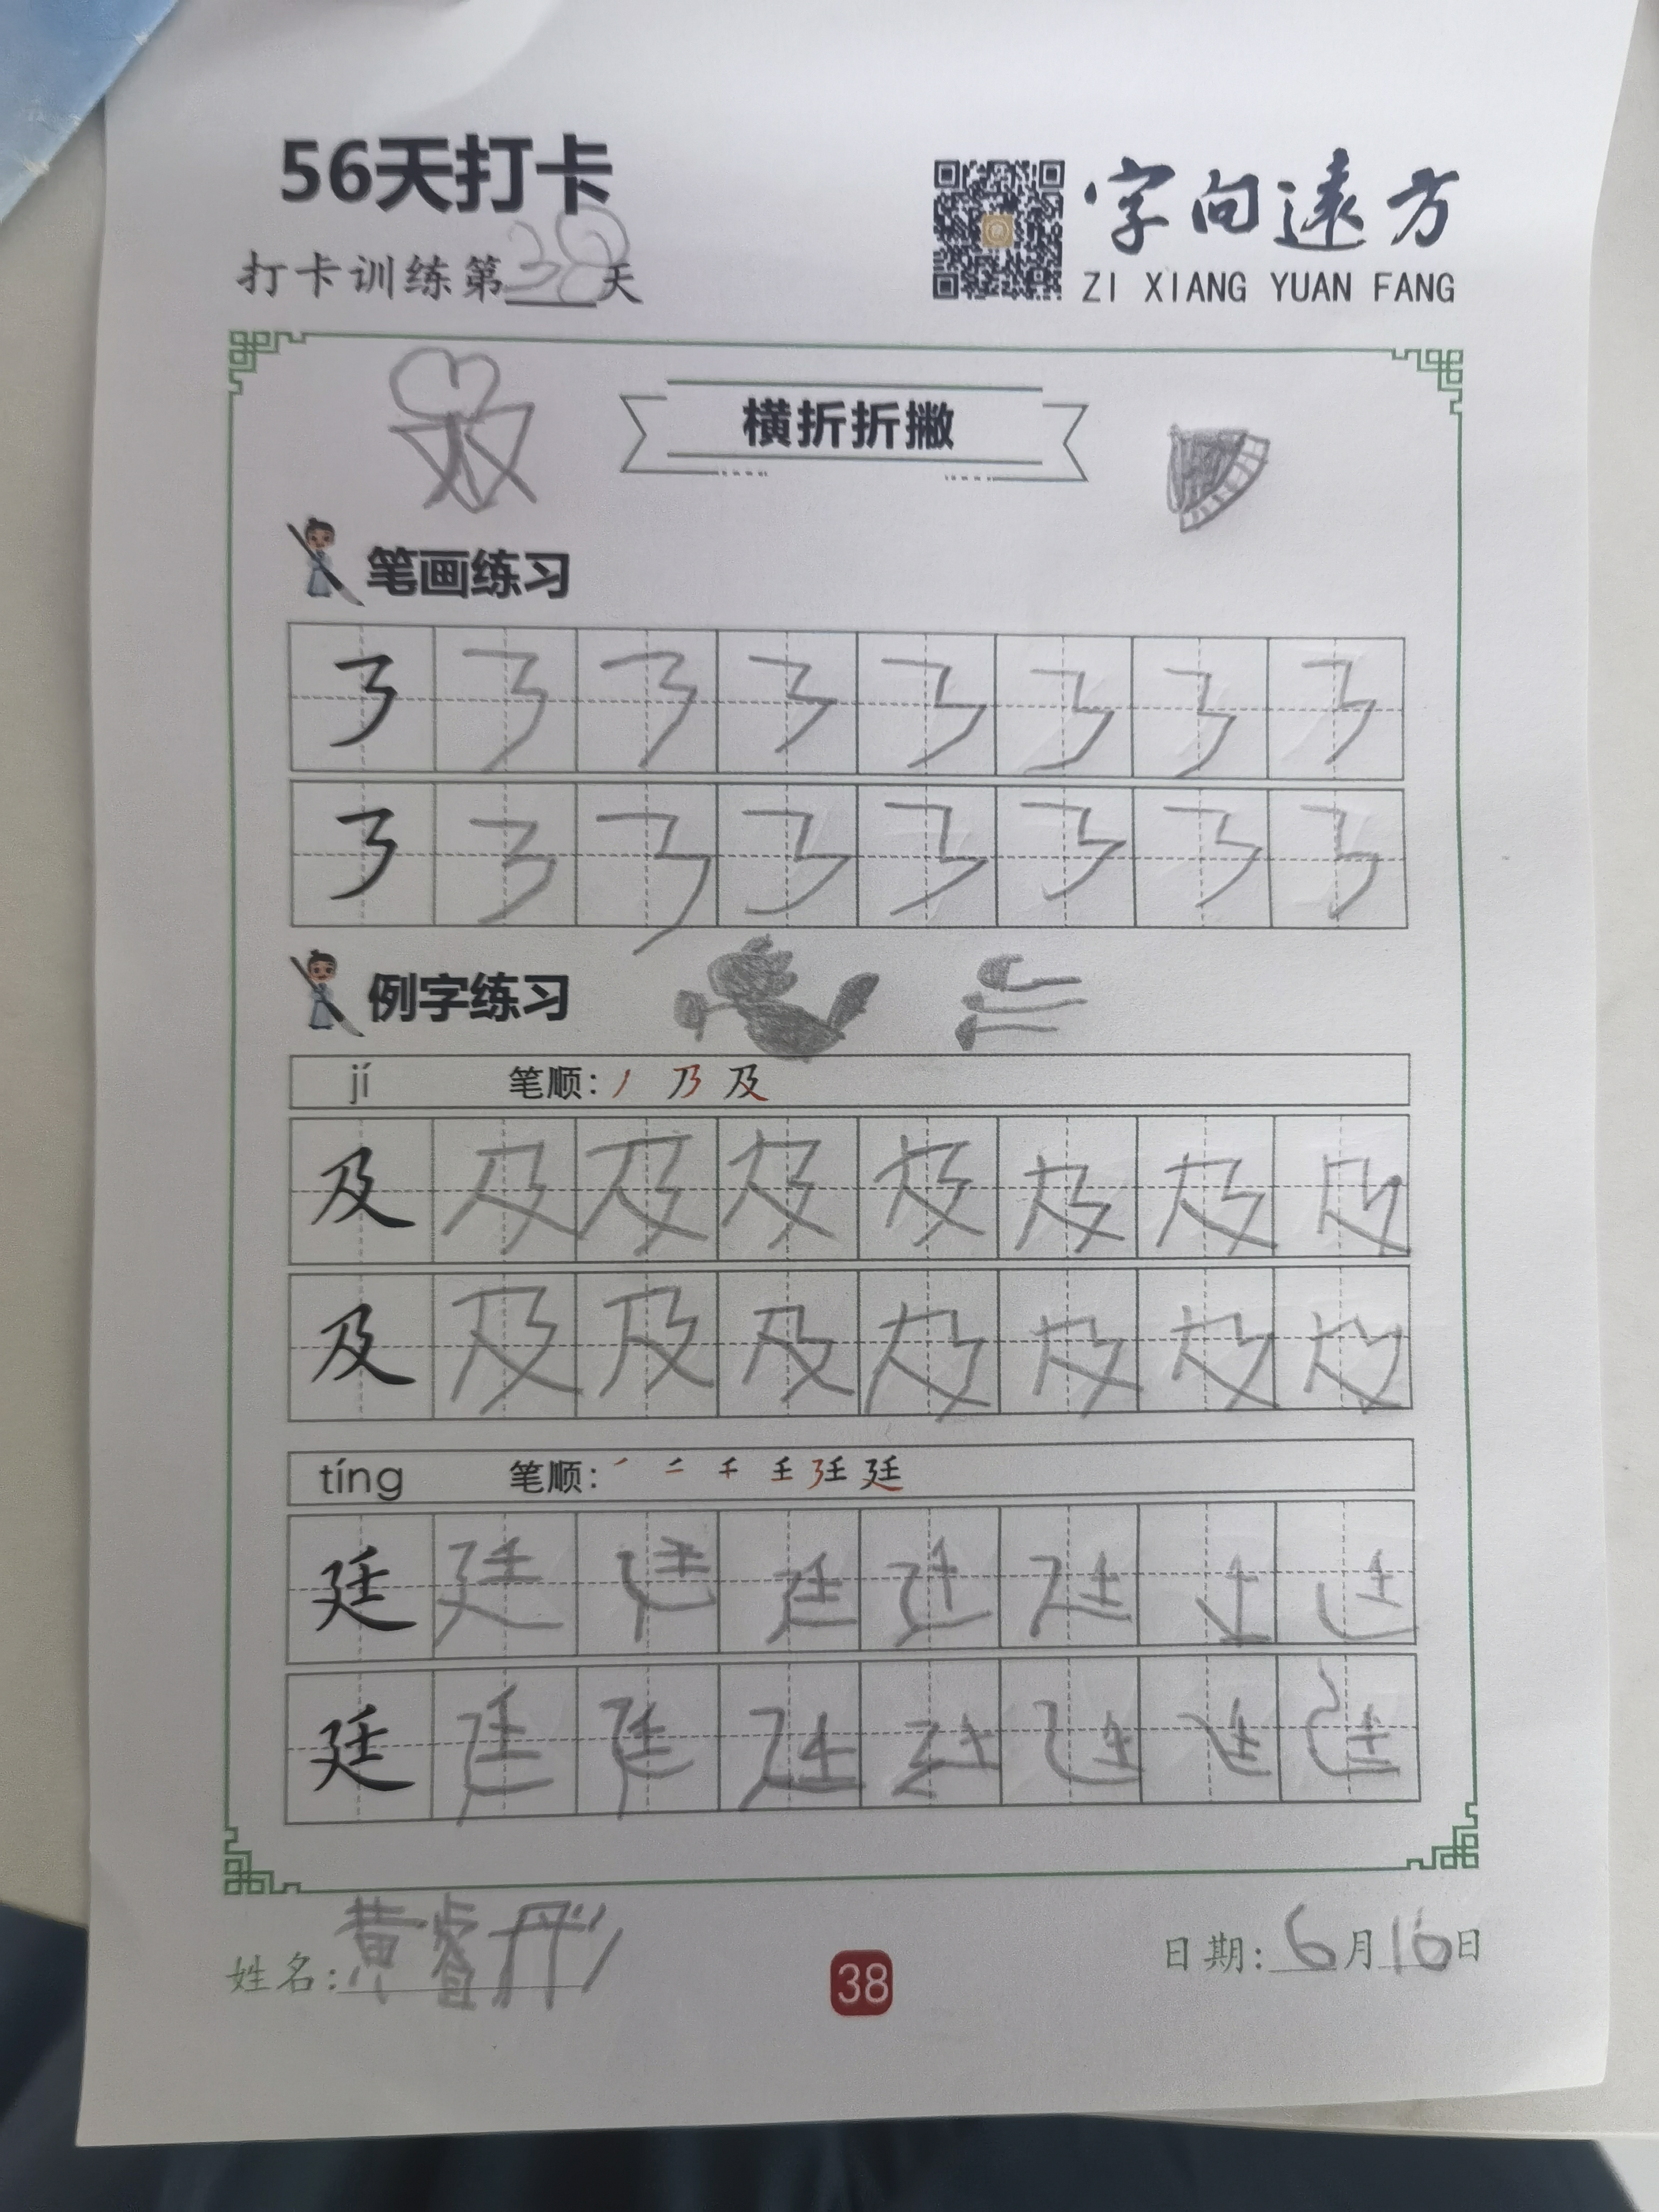 56天打卡
字向遠方
打卡训练第38天
ZI XIANG YUAN FANG
横折折撇
笔画练习
㇋ ㇋ ㇋ ㇋ ㇋ ㇋ ㇋ ㇋
㇋ ㇋ ㇋ ㇋ ㇋ ㇋ ㇋ ㇋
例字练习
jí 笔顺: 丿 乃 及
及 及 及 及 及 及 及 及
及 及 及 及 及 及 及 及
tíng 笔顺:
廷 廷 廷 廷 廷 廷 廷 廷
廷 廷 廷 廷 廷 廷 廷 廷
姓名: 黄睿彤
38
日期: 6月16日